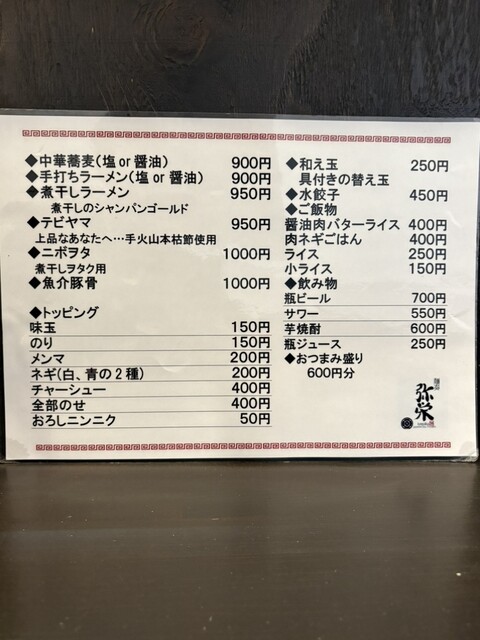 ◆中華蕎麦(塩or醤油) 900円
◆手打ちラーメン(塩or醤油) 900円
◆煮干しラーメン 950円
煮干しのシャンパンゴールド
◆テビヤマ 950円
上品なあなたへ…手火山本枯節使用
◆ニボヲタ 1000円
煮干しヲタク用
◆魚介豚骨 1000円
◆トッピング
味玉 150円
のり 150円
メンマ 200円
ネギ(白、青の2種) 200円
チャーシュー 400円
全部のせ 400円
おろしニンニク 50円
◆和え玉 250円
具付きの替え玉
◆水餃子 450円
◆ご飯物
醤油肉バターライス 400円
肉ネギごはん 400円
ライス 250円
小ライス 150円
◆飲み物
瓶ビール 700円
サワー 550円
芋焼酎 600円
瓶ジュース 250円
◆おつまみ盛り
600円分
弥栄